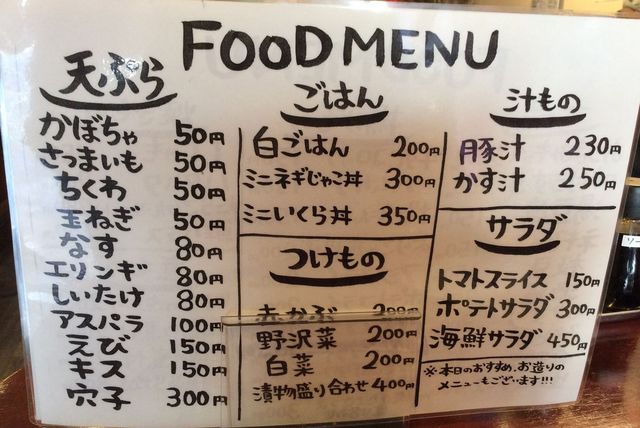 FOOD MENU
天ぷら
かぼちゃ 50円
さつまいも 50円
ちくわ 50円
玉ねぎ 50円
なす 80円
エリンギ 80円
しいたけ 80円
アスパラ 100円
えび 150円
キス 150円
穴子 300円
ごはん
白ごはん 200円
ミニネギじゃこ丼 300円
ミニいくら丼 350円
つけもの
赤かぶ 200円
野沢菜 200円
白菜 200円
漬物盛り合わせ 400円
汁もの
豚汁 230円
かす汁 250円
サラダ
トマトスライス 150円
ポテトサラダ 300円
海鮮サラダ 450円
※本日のおすすめ、お造りの
メニューもございます!!!